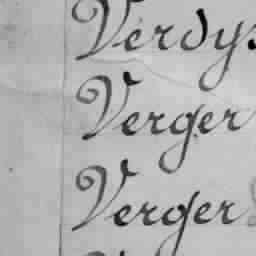 Verdys
Verger
Verger